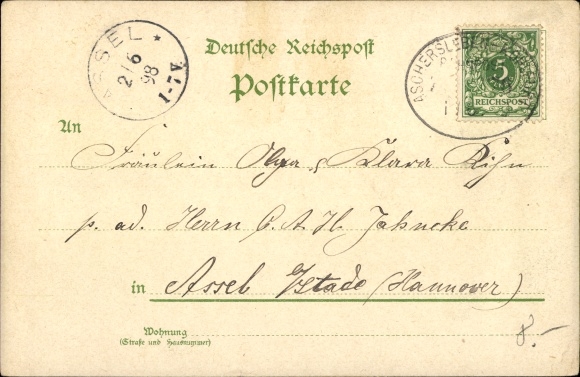 ASSEL *
2/6
98
1-7 V.
Deutsche Reichspost
Postkarte
ASCHERSLEBEN
5
REICHSPOST
An
Fräulein Olga & Klara
p. ad. Herrn C. A. H. Jahncke
in Assel b/Stade (Hannover)
Wohnung
(Straße und Hausnummer)
8.-